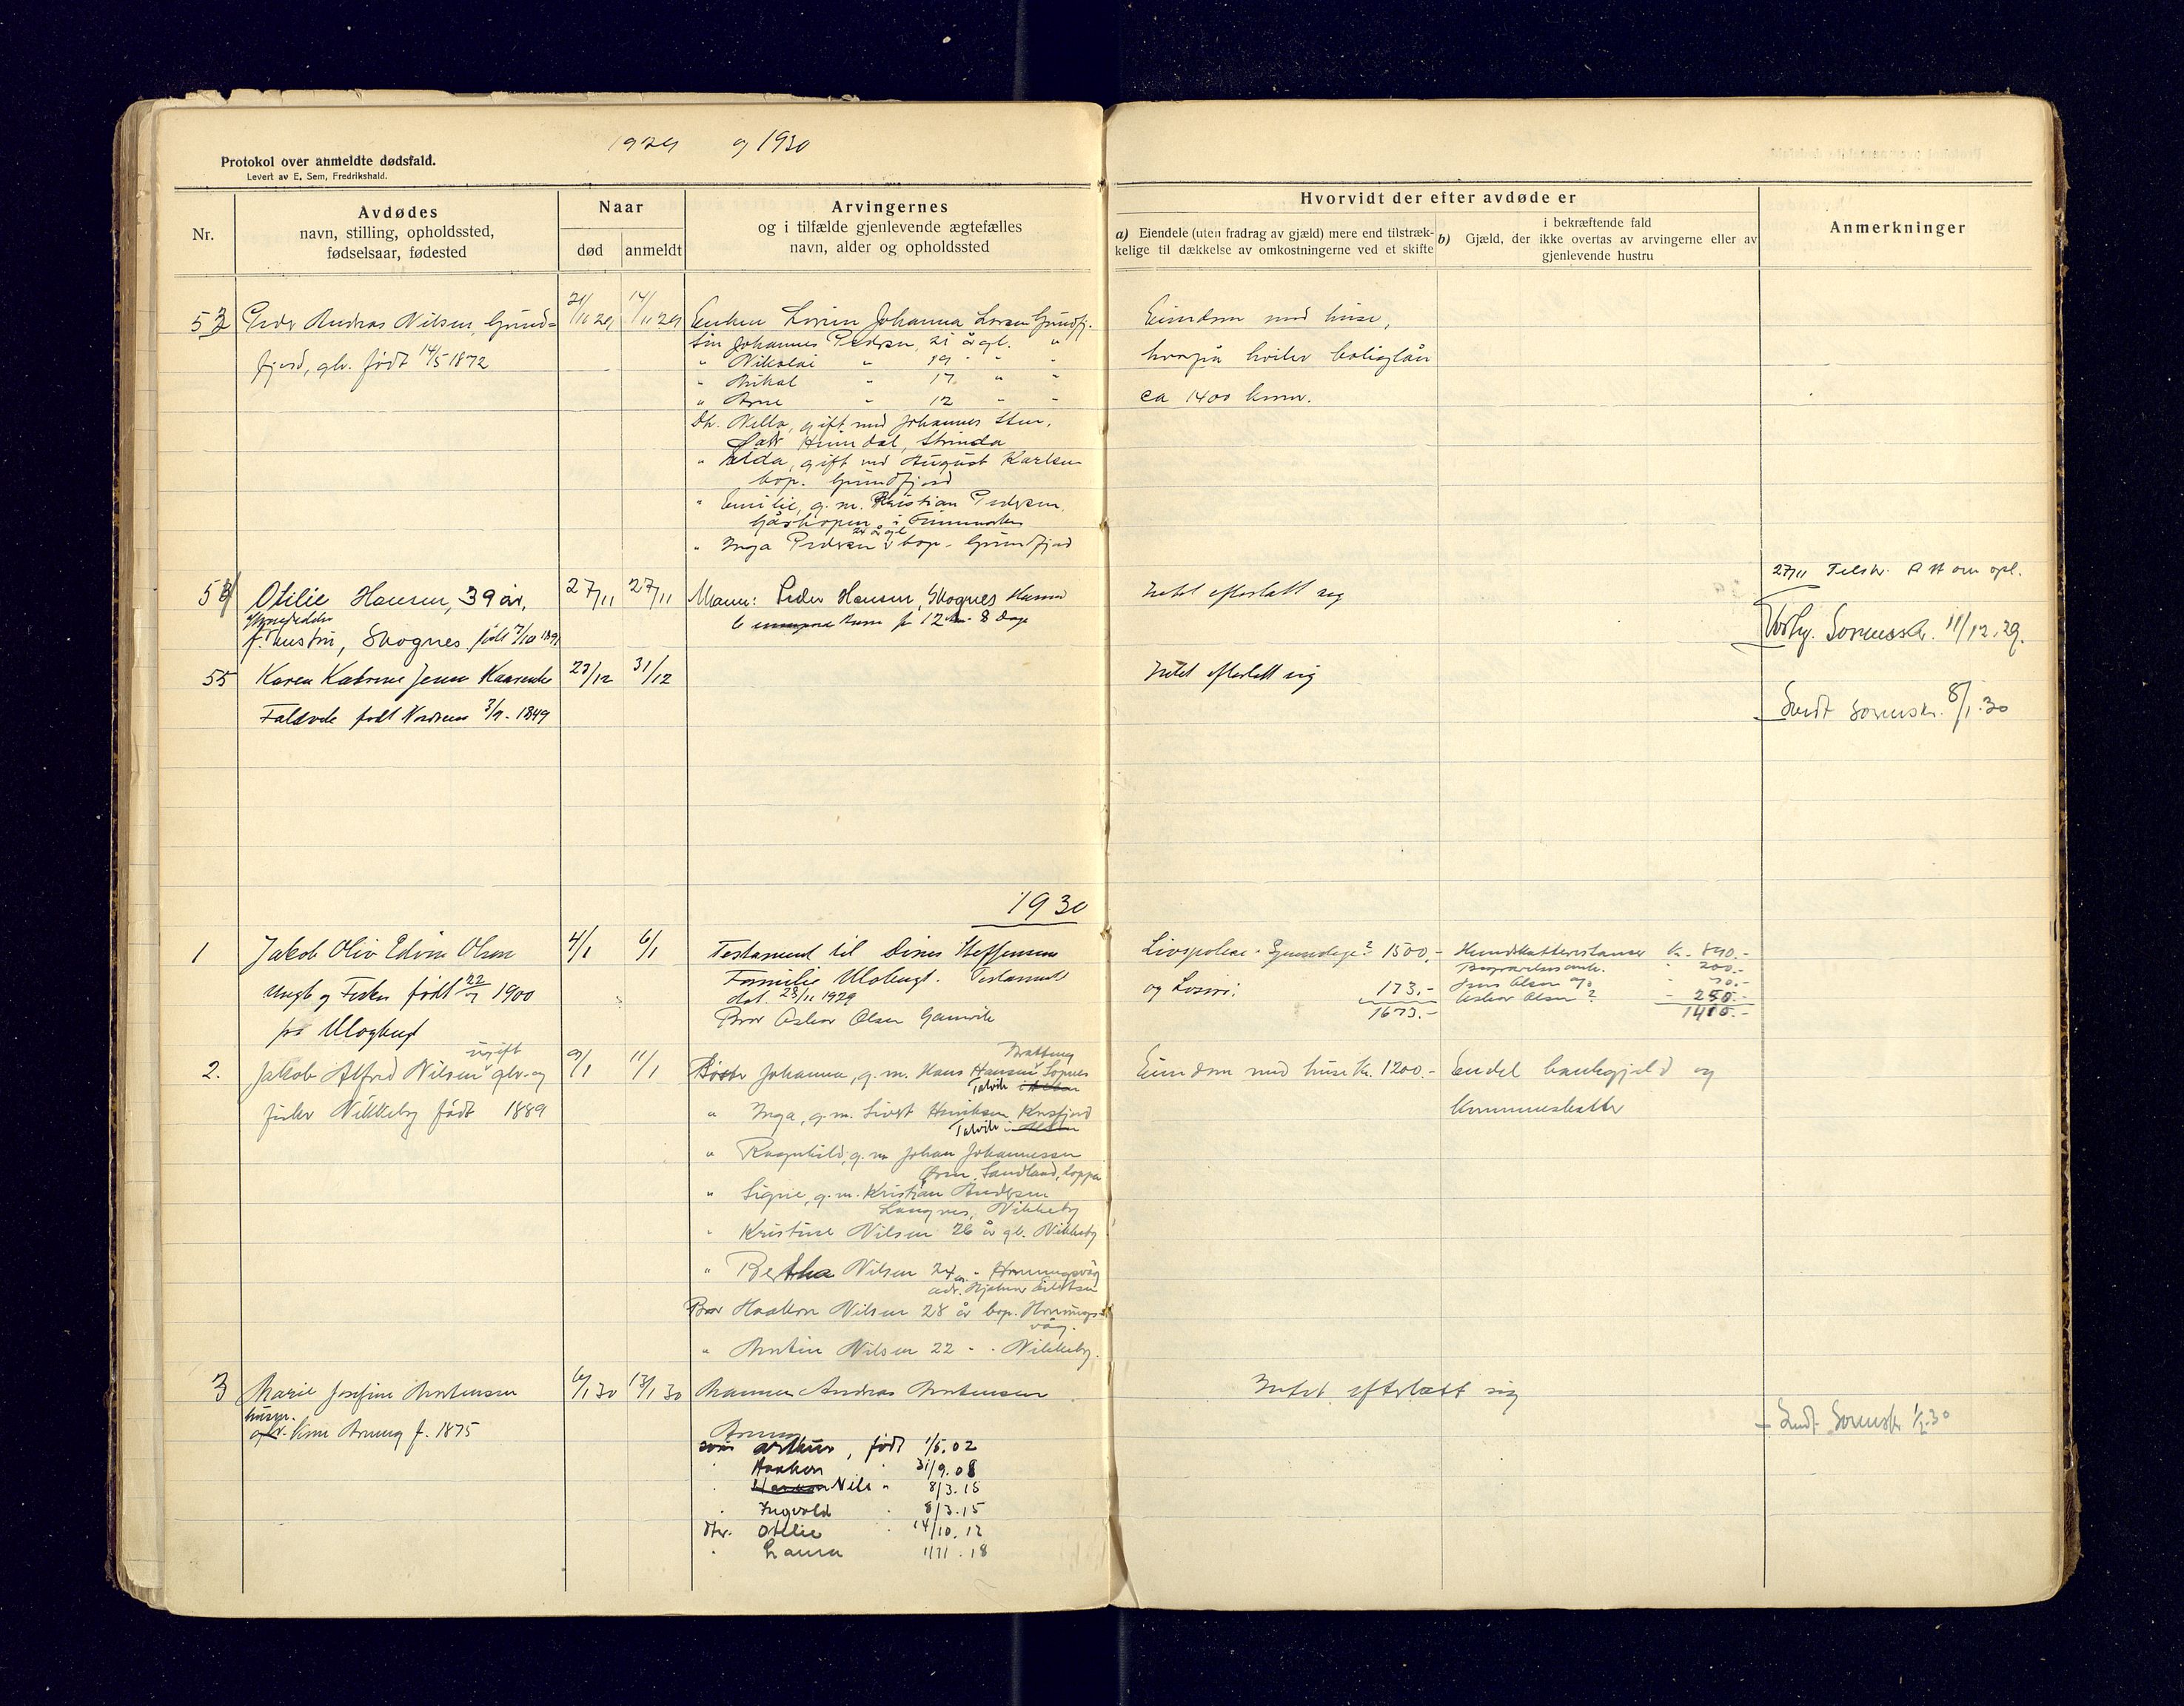 1929 og 1930
Protokol over anmeldte dødsfald.
Levert av E. Sem, Fredrikshald.
Nr.
Avdødes
navn, stilling, opholdssted,
fødselsaar, fødested
Naar
død
anmeldt
Arvingernes
og i tilfælde gjenlevende ægtefælles
navn, alder og opholdssted
Hvorvidt der efter avdøde er
a) Eiendele (uten fradrag av gjæld) mere end tilstræk-
kelige til dækkelse av omkostningerne ved et skifte
b) i bekræftende fald
Gjæld, der ikke overtas av arvingerne eller av
gjenlevende hustru
Anmerkninger
53 Peder Andreas Nilsen, Grund-
fjord, gbr. født 14/5 1872
21/11 29 14/11 29
Enken Lovise Johanna Larsen Grundfj.
Søn Johannes Pedersen, 21 år gl. "
" Nikolai " 19 " "
" Mikal " 17 " "
" Arne " 12 " "
Dtr. Nella, gift med Johannes Sten,
Heimdal, Strinda
" Alda, gift med August Karlsen
bop. Grundfjord
" Emilie, g. m. Kristian Pedersen
Gåshopen i Finnmarken
21 år gl.
" Inga Pedersen bop. Grundfjord
Eiendom med huse,
hvorpå hviler boliglån
ca 1400 kroner.
Otilie Hansen, 39 år,
f. hustru, Skognes født 7/10 1891
27/11 27/11
Mann: Peder Hansen, Skognes
6 barn fr 12 år - 8 Dage
Intet efterlatt sig
27/11 Telskr. om opl.
Sorenskr. 11/12.29.
55 Karen Katrine Jensen
født 3/9 - 1849
23/12 31/12
Intet efterlatt sig
Sendt sorenskr. 8/1.30
1930
1 Jakob Oliv Edvin Olsen
Ungk og Fisker født 22/7 1900
på Uløybugt
4/1 6/1
Testament til Dines Steffensens
Familie Uløbugt. Testament
dat. 28/11 1929
Bror Oskar Olsen Gamvik
Livspolise 1500,-
og Losøre: 173.-
1673.-
kr. 890.-
" 200.-
Jens Olsen og " 70.-
Oskar Olsen? - 250.-
1410.-
2. Jakob Alfred Nilsen ugift gbr. og
fisker Nikkeby født 1889
9/1 11/1
Søster Johanna, g. m. Hans Hansen Sopnes
Talvik
" Inga, g. m. Sivert Henriksen Korsfjord
Talvik
" Ragnhild, g. m. Johan Johannessen
Øren, Sandland, Loppa
" Signe, g. m. Kristian Andersen
Langnes, Nikkeby
" Kristine Nilsen 26 år gl. Nikkeby
" Bertha Nilsen 24 " - Honningsvåg
adr. Hjalmar Eilertsen
Bror Haakon Nilsen 28 år bop. Honnings-
våg.
" Martin Nilsen 22 - - Nikkeby.
Eiendom med huse kr. 1200.-
Endel bankgjeld og
kommuneskatter
3 Marie Josefine Mortensen
husm.
gbr. kone Arnøy f. 1875
6/1 30 13/1 30
Mannen Andreas Mortensen
Arnøy
søn Arthur, født 1/5.02
" Haakon " 31/9.08
" Nils " 8/3.15
" Ingvald " 8/3.15
dtr. Otilie " 14/10.12
" Laura 1/11.18
Intet efterlatt sig
Sendt Sorenskr 1/2.30